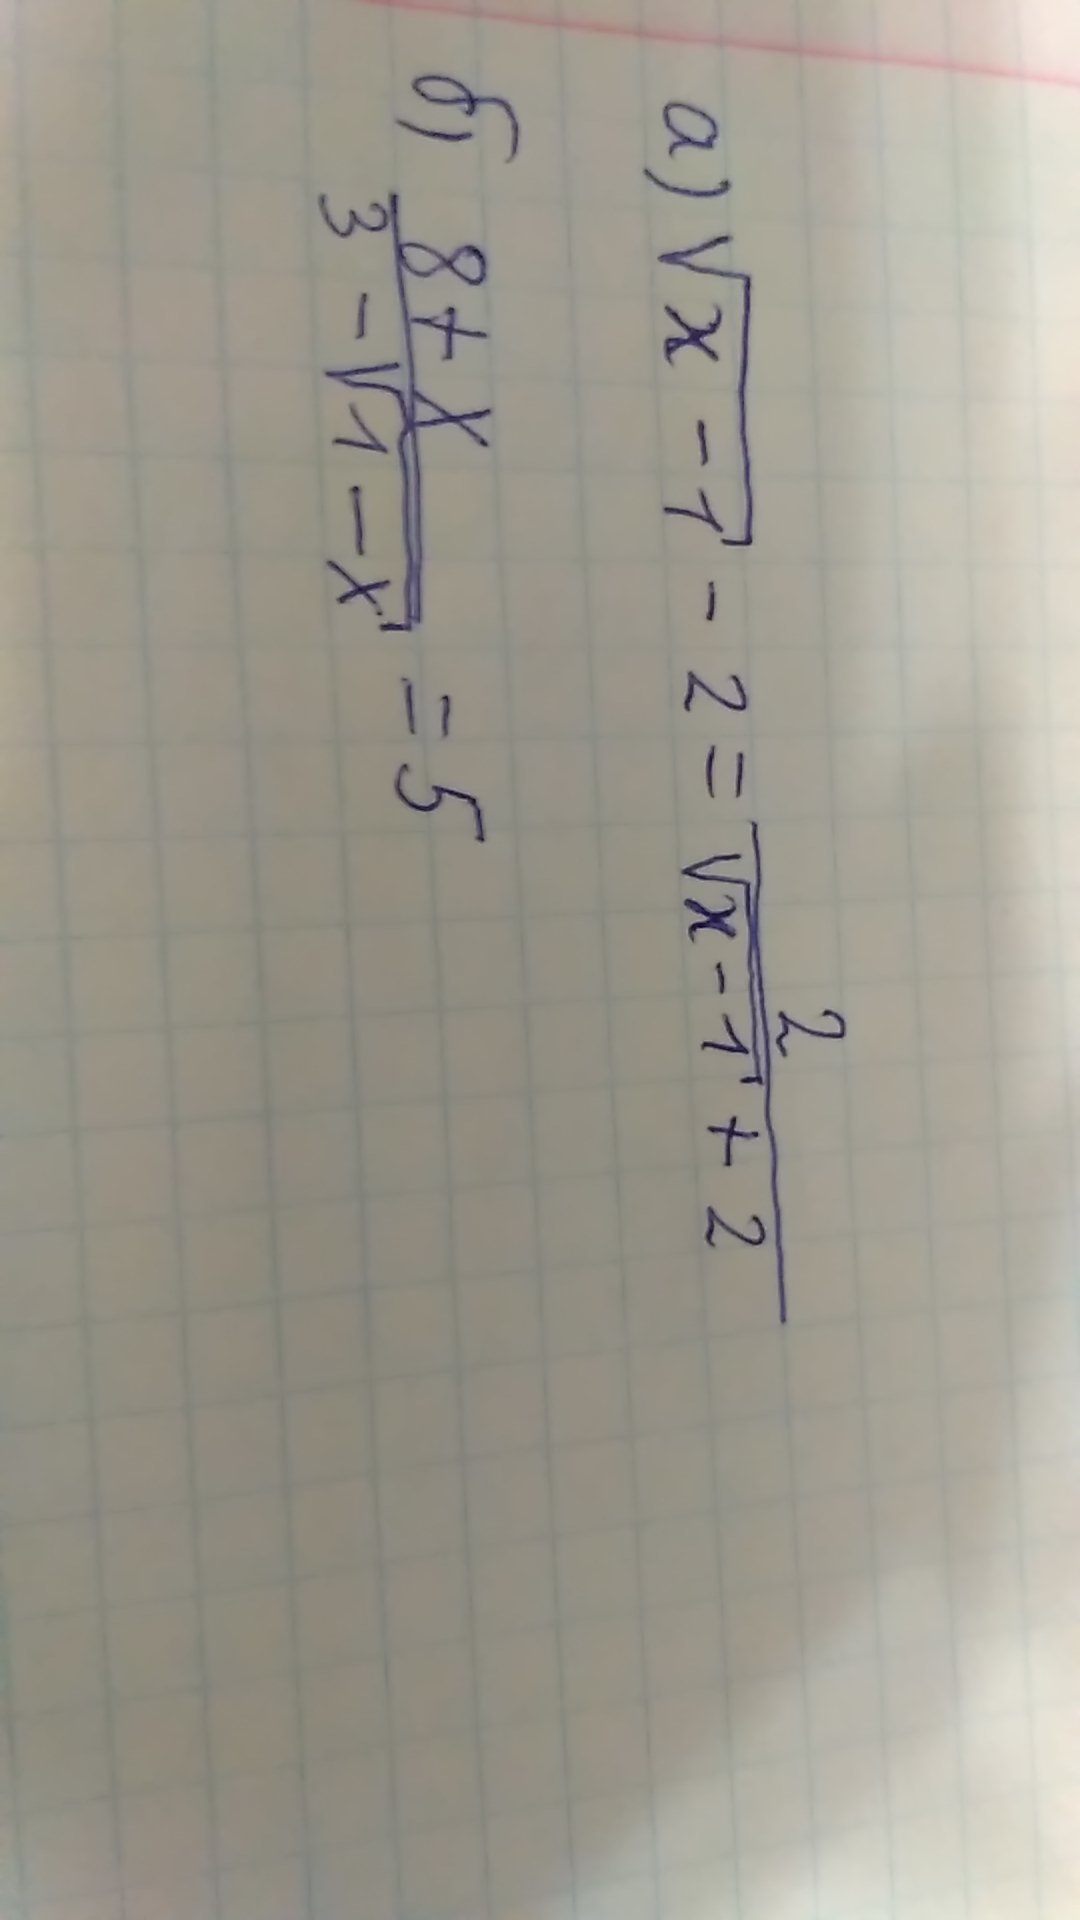 а) √(x - 1) - 2 = 2/(√(x - 1) + 2)
б) (8 + x)/(3 - √(1 - x)) = 5